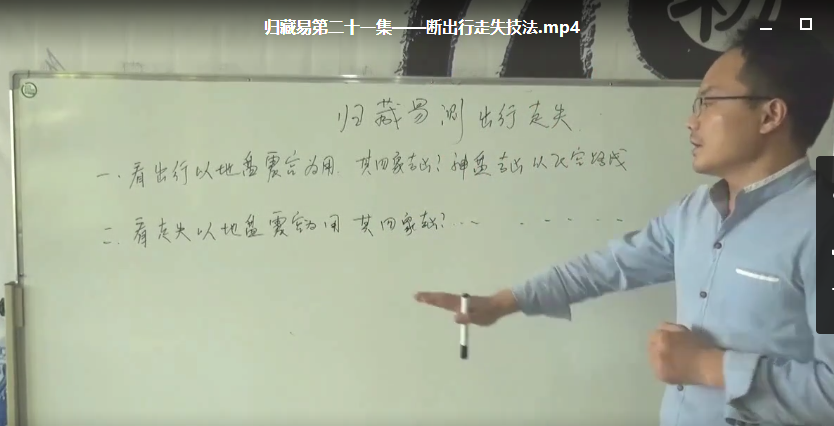 归藏易第二十一集——断出行走失技法.mp4
归藏易测出行走失
一.看出行以地盘震宫为用.其四象吉凶?神盘吉凶以飞宫
二.看走失以地盘震宫为用 其四象吉凶?